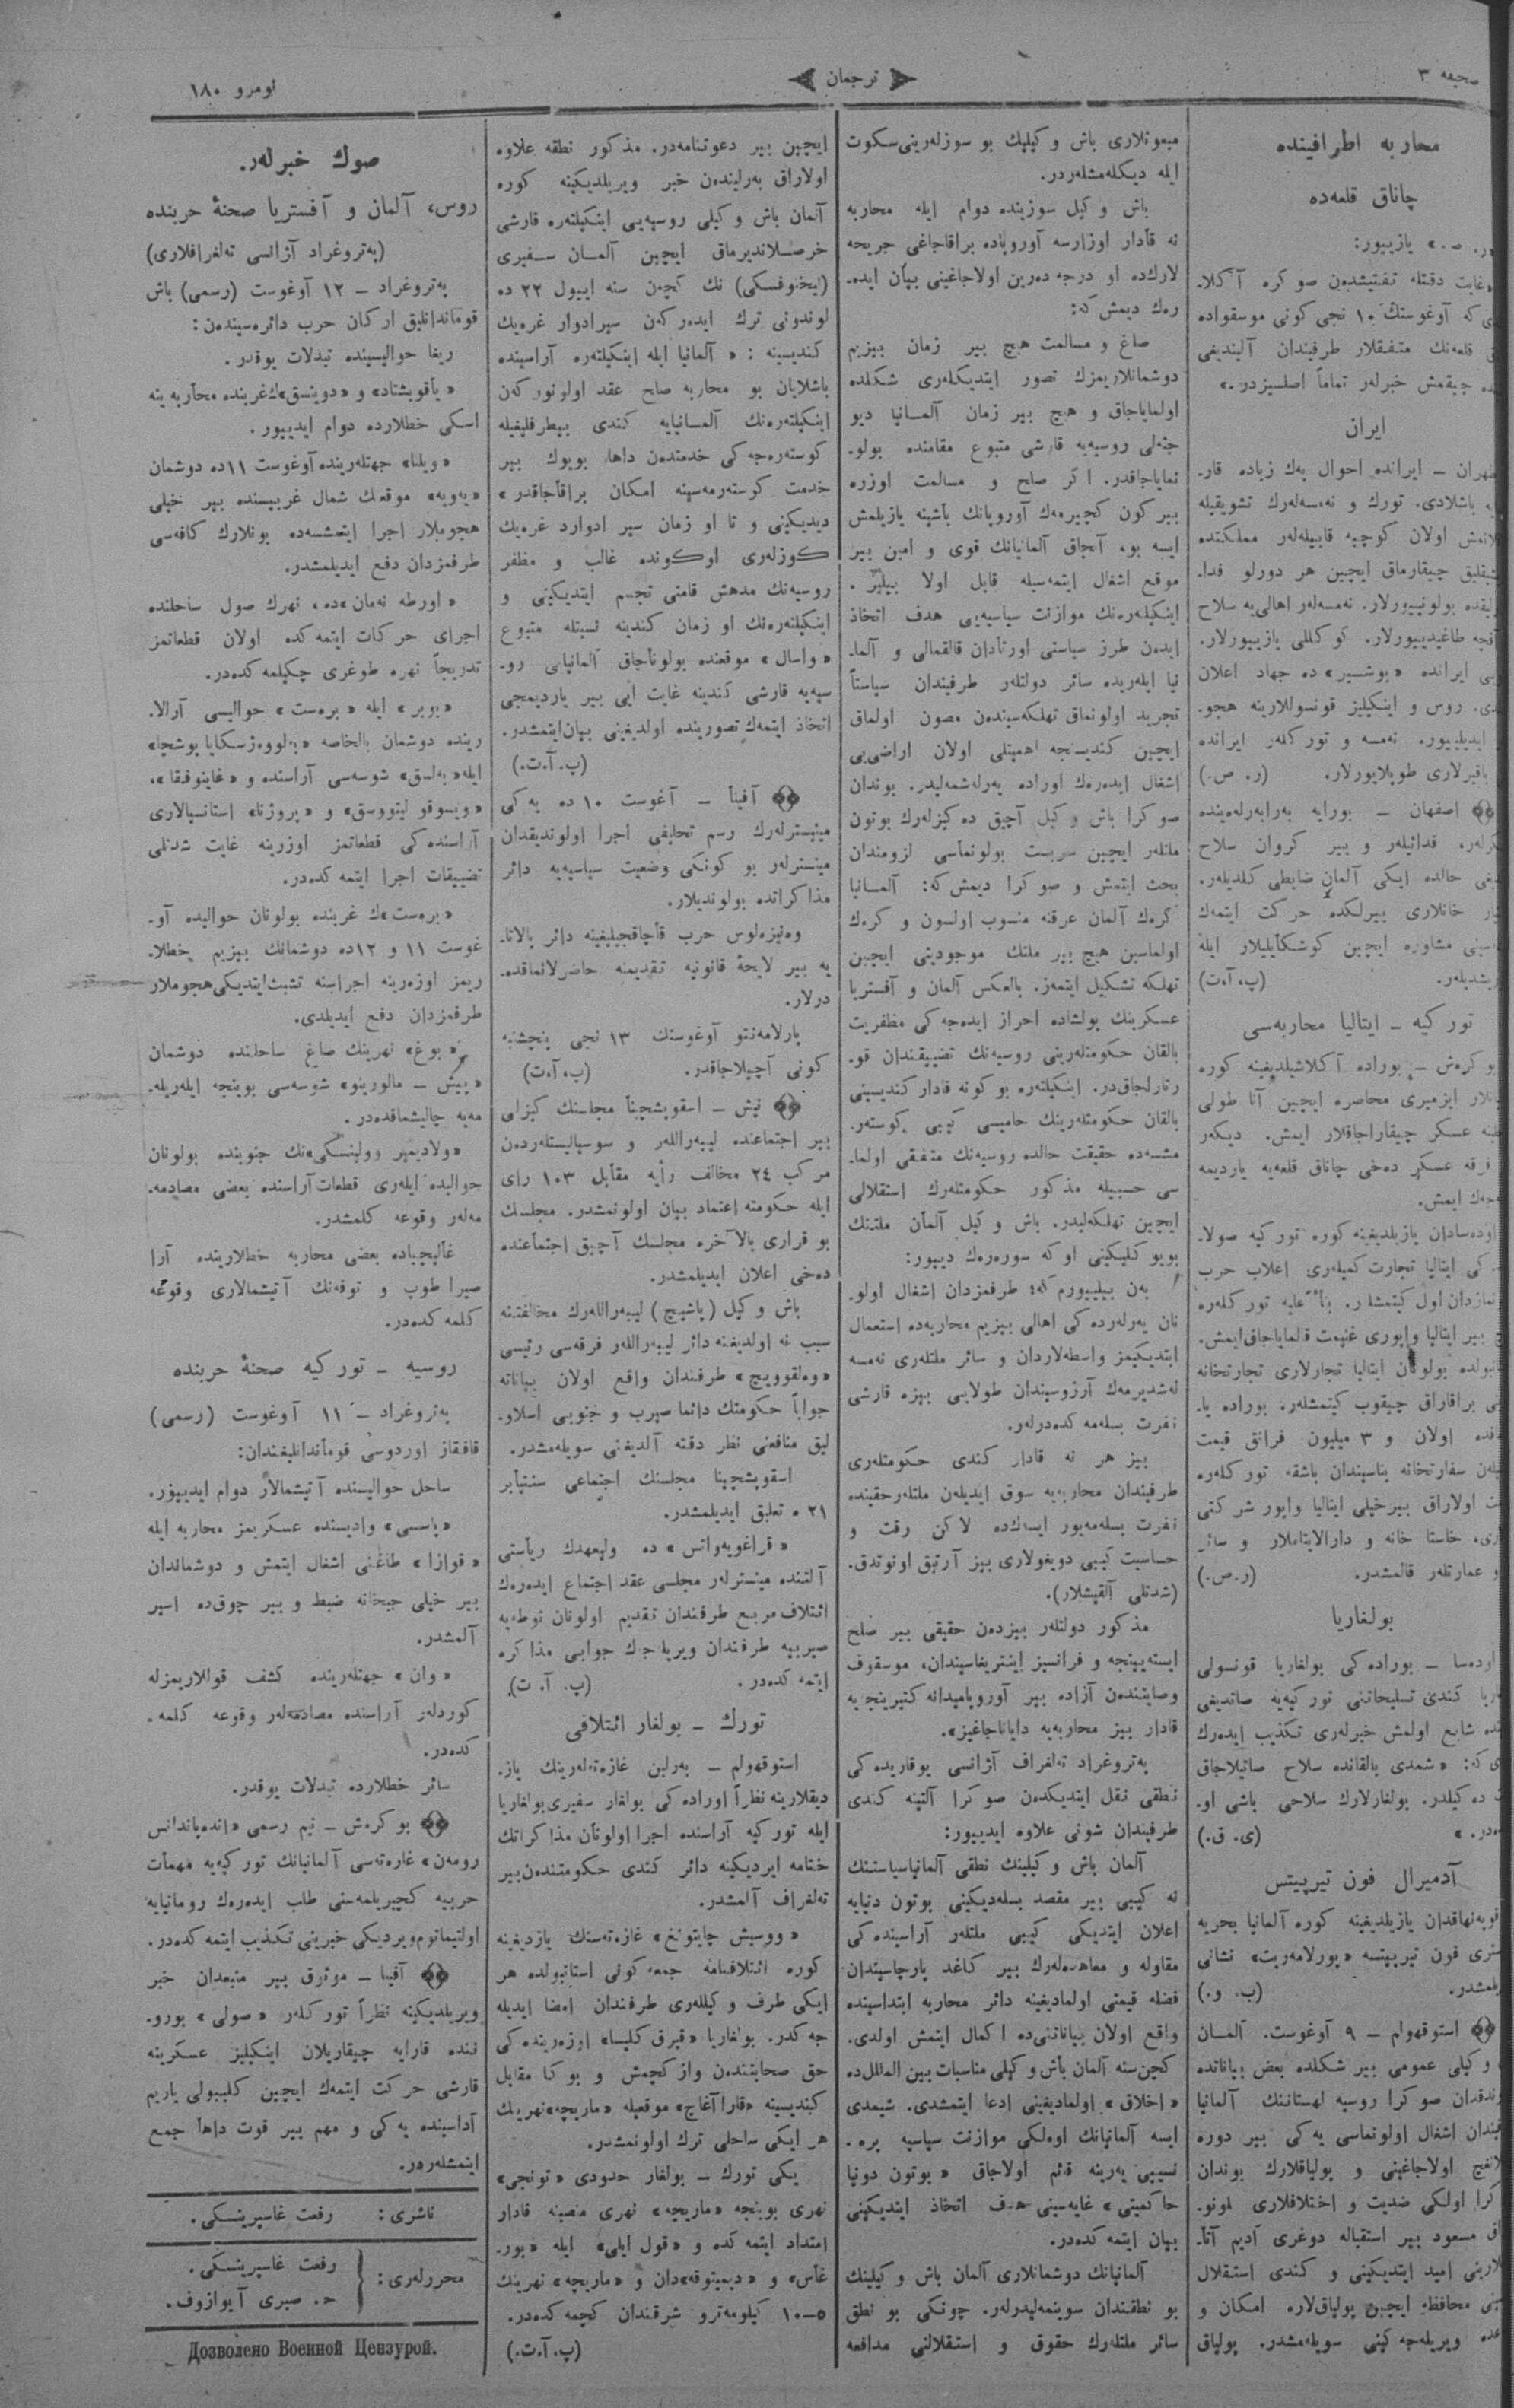 صحیفه ٣
ترجمان
نومرو ١٨٠
محاربه اطرافینده
چاناق قلعه‌ده
یازییور:
غایت دقتله تفتیشدن صوكره آكلا-
كه آوغوستڭ ١٠ نجی كونی موسقواده
قلعه‌نك متفقلار طرفیندان آلیندیغی
چیقمش خبرلەر تماماً اصلسیزدر.»
ایران
طهران – ایرانده احوال پەك زیاده قار-
باشلادی. تورك و نەمسەلەرك تشویقیله
اولان كوچبه قابیله‌لەر مملكتده
چیقارماق ایچین هر دورلو فدا-
بولونییورلار. نەمسەلەر اهالی‌یه سلاح
آقچه طاغیدییورلار. یازییورلار.
ایرانده «بوشیر» ده جهاد اعلان
روس و اینكیلیز قونسوللارینه هجو-
ایدیلییور. نەمسه و توركلەر ایرانده
باقیرلاری طوپلایورلار. (ر. ص.)
اصفهان – بورایه بەرابەرلەرینده
فدائیلەر و بیر كروان سلاح
حالده ایكی آلمان ضابطی كلدیلەر.
خانلاری بیرلكده حركت ایتمەك
مشاوره ایچین كوشكلیلیلار ایله
(پ، آ،ت)
توركیه – ایتالیا محاربه‌سی
بوكرەش – بوراده آكلاشیلدیغینه كوره
ازمیری محاصره ایچین آنا طولی
عسكر چیقاراجاقلار ایمش. دیكەر
فرقه عسكر دەخی چاناق قلعه‌یه یاردیمه
ایمش.
اودەسادان یازیلدیغینه كوره توركیه صولا-
كی ایتالیا تجارت كمیلەری اعلان حرب
اول كیتمشلر. توركلەره
بیر ایتالیا واپوری غنیمت قالمایاجاق‌ایمش.
بولونان ایتالیا تجارلاری تجارتخانه
براقاراق چیقوب كیتمشلەر. بوراده یا-
اولان و ٣ میلیون فرانق قیمت
سفارتخانه بناسیندان باشقه توركلەره
اولاراق بیرخیلی ایتالیا واپور شركتی
خاستا خانه و دارالایتاملار و سائر
عمارتلەر قالمشدر. (ر.ص.)
بولغاریا
اودەسا – بوراده‌كی بولغاریا قونسولی
كندی تسلیحاتنی توركیه‌یه صاتدیغی
شایع اولمش خبرلەری تكذیب ایدەرك
كه: «شمدی بالقانده سلاح صاتیلاجاق
دەكیلدر. بولغارلارك سلاحی باشی او-
(ی. ق.)
آدمیرال فون تیرپیتس
قوپەنهاقدان یازیلدیغینه كوره آلمانیا بحریه
فون تیرپیتسه «پورلەمەریت» نشانی
(پ. و.)
استوقهولم – ٩ آوغوست. آلمان
وكیلی عمومی بیر شكلده بعض بیاناتده
صوكرا روسیه لهستاننك آلمانیا
اشغال اولونماسی یەكی بیر دوره
اولاجاغینی و پولیاقلارك بوندان
اولكی ضدیت و اختلافلاری اونو-
مسعود بیر استقباله دوغری آدیم آتا-
امید ایتدیكینی و كندی استقلال
محافظه ایچین پولیاق‌لاره امكان و
ویریلەجەكینی سویلەمشدر. پولیاق
مبعوثلاری باش وكیلیك بو سوزلەرینی‌سكوت
ایله دیكلەمشلەردر.
باش وكیل سوزینده دوام ایله محاربه
نه قادار اوزارسه آوروپاده براقاجاغی جریحه
لارك‌ده او درجه دەرین اولاجاغینی بیان ایدە-
رەك دیمش كه:
صاغ و مسالمت هیچ بیر زمان بیزیم
دوشمانلاریمزك تصور ایتدیكلەری شكلده
اولمایاجاق و هیچ بیر زمان آلمانیا دیو
جثه‌لی روسیه‌یه قارشی متبوع مقامنده بولو-
نمایاجاقدر. اكر صلح و مسالمت اوزره
بیركون كچیرمەك آوروپانك باشینه یازیلمش
ایسه بو، آنجاق آلمانیانك قوی و امین بیر
موقع اشغال ایتمەسیله قابل اولا بیلیر.
اینكیلتەرەنك موازنت سیاسیه‌یی هدف اتخاذ
ایدەن طرز سیاستی اورتادان قالقمالی و آلما-
نیا ایلەریده سائر دولتلەر طرفیندان سیاستاً
تجرید اولونماق تهلكه‌سیندەن مصون اولماق
ایچین كندیسنجه اهمیتلی اولان اراضی‌یی
اشغال ایدەرەك اوراده یەرلەشمەلیدر. بوندان
صوكرا باش وكیل آچیق دەكیزلەرك بوتون
ملتلەر ایچین سربست بولونماسی لزومندان
بحث ایتمش و صوكرا دیمش‌كه: آلمانیا
كرەك آلمان عرقنه منسوب اولسون و كرەك
اولماسین هیچ بیر ملتك موجودیتی ایچین
تهلكه تشكیل ایتمەز. بالعكس آلمان و آفستریا
عسكرینك بولشاده احراز ایدەجەكی مظفریت
بالقان حكومتلەرینی روسیه‌نك تضییقندان قو-
رتارلجاق‌در. اینكیلتەره بوكونه قادار كندیسینی
بالقان حكومتلەرینك حامیسی كیبی كوستەر-
مشسه‌ده حقیقت حالده روسیه‌نك متفقی اولما-
سی حسبیله مذكور حكومتلەرك استقلالی
ایچین تهلكه‌لیدر. باش وكیل آلمان ملتنك
بویوكلیكینی اوكه سورەرەك دییور:
بەن بیلییورم كه؛ طرفمزدان اشغال اولو-
نان یەرلەرده‌كی اهالی بیزیم محاربه‌ده استعمال
ایتدیكیمز واسطه‌لاردان و سائر ملتلەری نەمسه
لەشدیرمەك آرزوسیندان طولایی بیزه قارشی
نفرت بسلەمەكدەدرلەر.
بیز هر نه قادار كندی حكومتلەری
طرفیندان محاربه‌یه سوق ایدیلەن ملتلەرحقینده
نفرت بسلەمەیور ایسەك‌ده لاكن رقت و
حساسیت كیبی دویغولاری بیز آرتیق اونوتدق.
(شدتلی آلقیشلار).
مذكور دولتلەر بیزدەن حقیقی بیر صلح
ایستەیینجه و فرانسیز اینتریغاسیندان، موسقوف
وصایتندەن آزاده بیر آوروپامیدانه كتیرینجه‌یه
قادار بیز محاربه‌یه دایاناجاغیز».
پەتروغراد تەلغراف آژانسی یوقاریده‌كی
نطقی نقل ایتدیكدەن صوكرا آلتینه كندی
طرفیندان شونی علاوه ایدییور:
آلمان باش وكیلینك نطقی آلمانیاسیاستنك
نه كیبی بیر مقصد بسلەدیكینی بوتون دنیایه
اعلان ایتدیكی كیبی ملتلەر آراسینده‌كی
مقاوله و معاهده‌لەرك بیر كاغد پارچاسیندان
فضله قیمتی اولمادیغینه دائر محاربه ابتداسینده
واقع اولان بیاناتنی‌ده اكمال ایتمش اولدی.
كچن‌سنه آلمان باش وكیلی مناسبات بین‌المللل‌ده
«اخلاق» اولمادیغینی ادعا ایتمشدی. شیمدی
ایسه آلمانیانك اوەلكی موازنت سیاسیه پره-
نسیپی یەرینه قائم اولاجاق «بوتون دونیا
حاكمیتی» غایه‌سینی هدف اتخاذ ایتدیكینی
بیان ایتمەكدەدر.
آلمانیانك دوشمانلاری آلمان باش وكیلینك
بو نطقندان سوینمەلیدرلەر. چونكی بو نطق
سائر ملتلەرك حقوق و استقلالنی مدافعه
ایچین بیر دعوتنامه‌در. مذكور نطقه علاوه
اولاراق بەرلیندەن خبر ویریلدیكینه كوره
آلمان باش وكیلی روسیه‌یی اینكیلتەره قارشی
خرصلاندیرماق ایچین آلمان سفیری
(لیخنوفسكی) نك كچەن سنه ایییول ٢٢ ده
لوندونی ترك ایدەركەن سیرادوار غرەیك
كندیسینه: «آلمانیا ایله اینكیلتەره آراسینده
باشلایان بو محاربه صلح عقد اولونوركەن
اینكیلتەرەنك آلمانیایه كندی بیطرفلیغیله
كوستەرەجەكی خدمتدەن داها بویوك بیر
خدمت كوستەرمەسینه امكان براقاجاقدر»
دیدیكینی و تا او زمان سیر ادوارد غرەیك
كوزلەری اوكونده غالب و مظفر
روسیه‌نك مدهش قامتی تجسم ایتدیكینی و
اینكیلتەرەنك او زمان كندینه نسبتله متبوع
«واسال» موقعنده بولوناجاق آلمانیایی رو-
سیه‌یه قارشی كندینه غایت ایی بیر یاردیمجی
اتخاذ ایتمەك‌تصورینده اولدیغینی بیان‌ایتمشدر.
(پ. آ.ت.)
آفینا – آغوست ١٠ ده یەكی
مینیسترلەرك رسم تحلیفی اجرا اولوندیقدان
مینسترلەر بو كونكی وضعیت سیاسیه‌یه دائر
مذاكراتده بولوندیلار.
وەنیزەلوس حرب قاچاقجیلیغینه دائر پالاتا-
یه بیر لایحهٔ قانونیه تقدیمنه حاضرلانماقده-
درلار.
پارلامەنتو آوغوستك ١٣ نجی پنجشنبه
كونی آچیلاجاقدر. (پ، آ،ت)
نیش – اسقوپشچینا مجلسنك كیزلی
بیر اجتماعنده لیبەراللەر و سوسیالیستلەردەن
مركب ٢٤ مخالف رأیه مقابل ١٠٣ رای
ایله حكومته اعتماد بیان اولونمشدر. مجلسك
بو قراری بالآخره مجلسك آچیق اجتماعنده
دەخی اعلان ایدیلمشدر.
باش وكیل (پاشیچ) لیبەراللەرك مخالفتنه
سبب نه اولدیغنه دائر لیبەراللەر فرقه‌سی رئیسی
«وەلقوویچ» طرفندان واقع اولان بیاناته
جواباً حكومتك دائما صیرب و جنوبی اسلاو-
لیق منافعنی نظر دقته آلدیغنی سویلەمشدر.
اسقوپشچینا مجلسنك اجتماعی سنتیابر
٢١ ه تعلیق ایدیلمشدر.
«قراغویەواتس» ده ولیعهدك ریأستی
آلتنده مینسترلەر مجلسی عقد اجتماع ایدەرەك
ائتلاف‌مربع طرفندان تقدیم اولونان نوطه‌یه
صیربیه طرفندان ویریلەجك جوابی مذاكره
ایتمەكدەدر. (پ. آ. ت).
تورك – بولغار ائتلافی
استوقهولم – بەرلین غازەتەلەرینك یاز-
دیقلارینه نظراً اوراده‌كی بولغار سفیری‌بولغاریا
ایله توركیه آراسنده اجرا اولونان مذاكراتك
ختامه ایردیكینه دائر كندی حكومتندەن‌بیر
تەلغراف آلمشدر.
«ووسیش چایتونغ» غازەتەسنك یازدیغینه
كوره ائتلافنامه جمعه كونی استانبولده هر
ایكی طرف وكیللەری طرفندان امضا ایدیله
جەكدر. بولغاریا «قیرق كلیسا» اوزەرینده‌كی
حق صحابتندەن واز كچمش و بوكا مقابل
كندیسینه «قاراآغاج» موقعیله «ماریچه»نهرینك
هر ایكی ساحلی ترك اولونمشدر.
یكی تورك – بولغار حدودی «تونجی»
نهری بوینجه «ماریچه» نهری منصبنه قادار
امتداد ایتمەكده و «قول ایلی» ایله «بور-
غاس» و «دیمیتوقه»دان و «ماریچه» نهرینك
٥–١٠ كیلومەترو شرقندان كچمەكدەدر.
(پ. آ.ت.)
صوك خبرلەر.
روس، آلمان و آفستریا صحنهٔ حربنده
(پەتروغراد آژانسی تەلغرافلاری)
پەتروغراد – ١٢ آوغوست (رسمی) باش
قوماندانلیق اركان حرب دائرەسیندەن:
ریغا حوالیسینده تبدلات یوقدر.
«یاقوبشتاد» و «دوینسق»ك‌غربنده محاربه‌ینه
اسكی خطلارده دوام ایدییور.
«ویلنا» جهتلەرینده‌آوغوست ١١ده دوشمان
«یەویه» موقعنك شمال غربیسنده بیر خیلی
هجوملار اجرا ایتمشسه‌ده بونلارك كافه‌سی
طرفمزدان دفع ایدیلمشدر.
«اورطه نەمان»ده، نهرك صول ساحلنده
اجرای حركات ایتمەكده اولان قطعاتمز
تدریجاً نهره طوغری چكیلمەكدەدر.
«بوبر» ایله «برەست» حوالیسی آرالا-
رینده دوشمان بالخاصه
ایله «بەلسق» شوسەسی آراسنده و
«ویسوقو لیتووسق» و استانسیالاری
آراسنده‌كی قطعاتمز اوزرینه غایت شدتلی
تضییقات اجرا ایتمەكدەدر.
«برەست»ك غربنده بولونان حوالیده آو-
غوست ١١ و ١٢ده دوشمانك بیزیم خطلا-
ریمز اوزەرینه اجراسنه تشبث‌ایتدیكی‌هجوملار
طرفمزدان دفع ایدیلدی.
«بوغ» نهرینك صاغ ساحلنده دوشمان
«پیش – مالورینو» شوسەسی بوینجه ایلەریله-
مەیه چالیشماقدەدر.
«ولادیمیر وولینسكی»نك جنوبنده بولونان
حوالیده ایلەری قطعات‌آراسنده بعضی مصادمه-
لەر وقوعه كلمشدر.
غالیچیاده بعضی محاربه خطلارینده آرا
صیرا طوپ و توفەنك آتیشمالاری وقوعه
كلمەكدەدر.
روسیه – توركیه صحنهٔ حربنده
پەتروغراد – ١١ آوغوست (رسمی)
قافقاز اوردوسی قوماندانلیغندان:
ساحل حوالیسنده آتیشمالار دوام ایدییور.
«پاسسی» وادیسنده عسكریمز محاربه ایله
«قوازا» طاغنی اشغال ایتمش و دوشماندان
بیر خیلی جبخانه ضبط و بیر چوق‌ده اسیر
آلمشدر.
«وان» جهتلەرینده كشف قوللاریمزله
كوردلەر آراسنده مصادمه‌لەر وقوعه كلمه-
كدەدر.
سائر خطلارده تبدلات یوقدر.
بوكرەش – نیم رسمی «اندەپاندانس
رومەن» غازەتەسی آلمانیانك توركیه‌یه مهمات
حربیه كچیریلمەسنی طلب ایدەرەك رومانیایه
اولتیماتوم‌ویردیكی خبرینی تكذیب ایتمەكدەدر.
آفینا – موثوق بیر منبعدان خبر
ویریلدیكینه نظراً توركلەر «صولی» بورو-
ننده قارایه چیقاریلان اینكیلیز عسكرینه
قارشی حركت ایتمەك ایچین كلیبولی یاریم
آداسینده یەكی و مهم بیر قوت داها جمع
ایتمشلەردر.
ناشری: رفعت غاسپرینسكی.
محررلەری: رفعت غاسپرینسكی.
ح. صبری آیوازوف.
Дозволено Военной Цензурой.